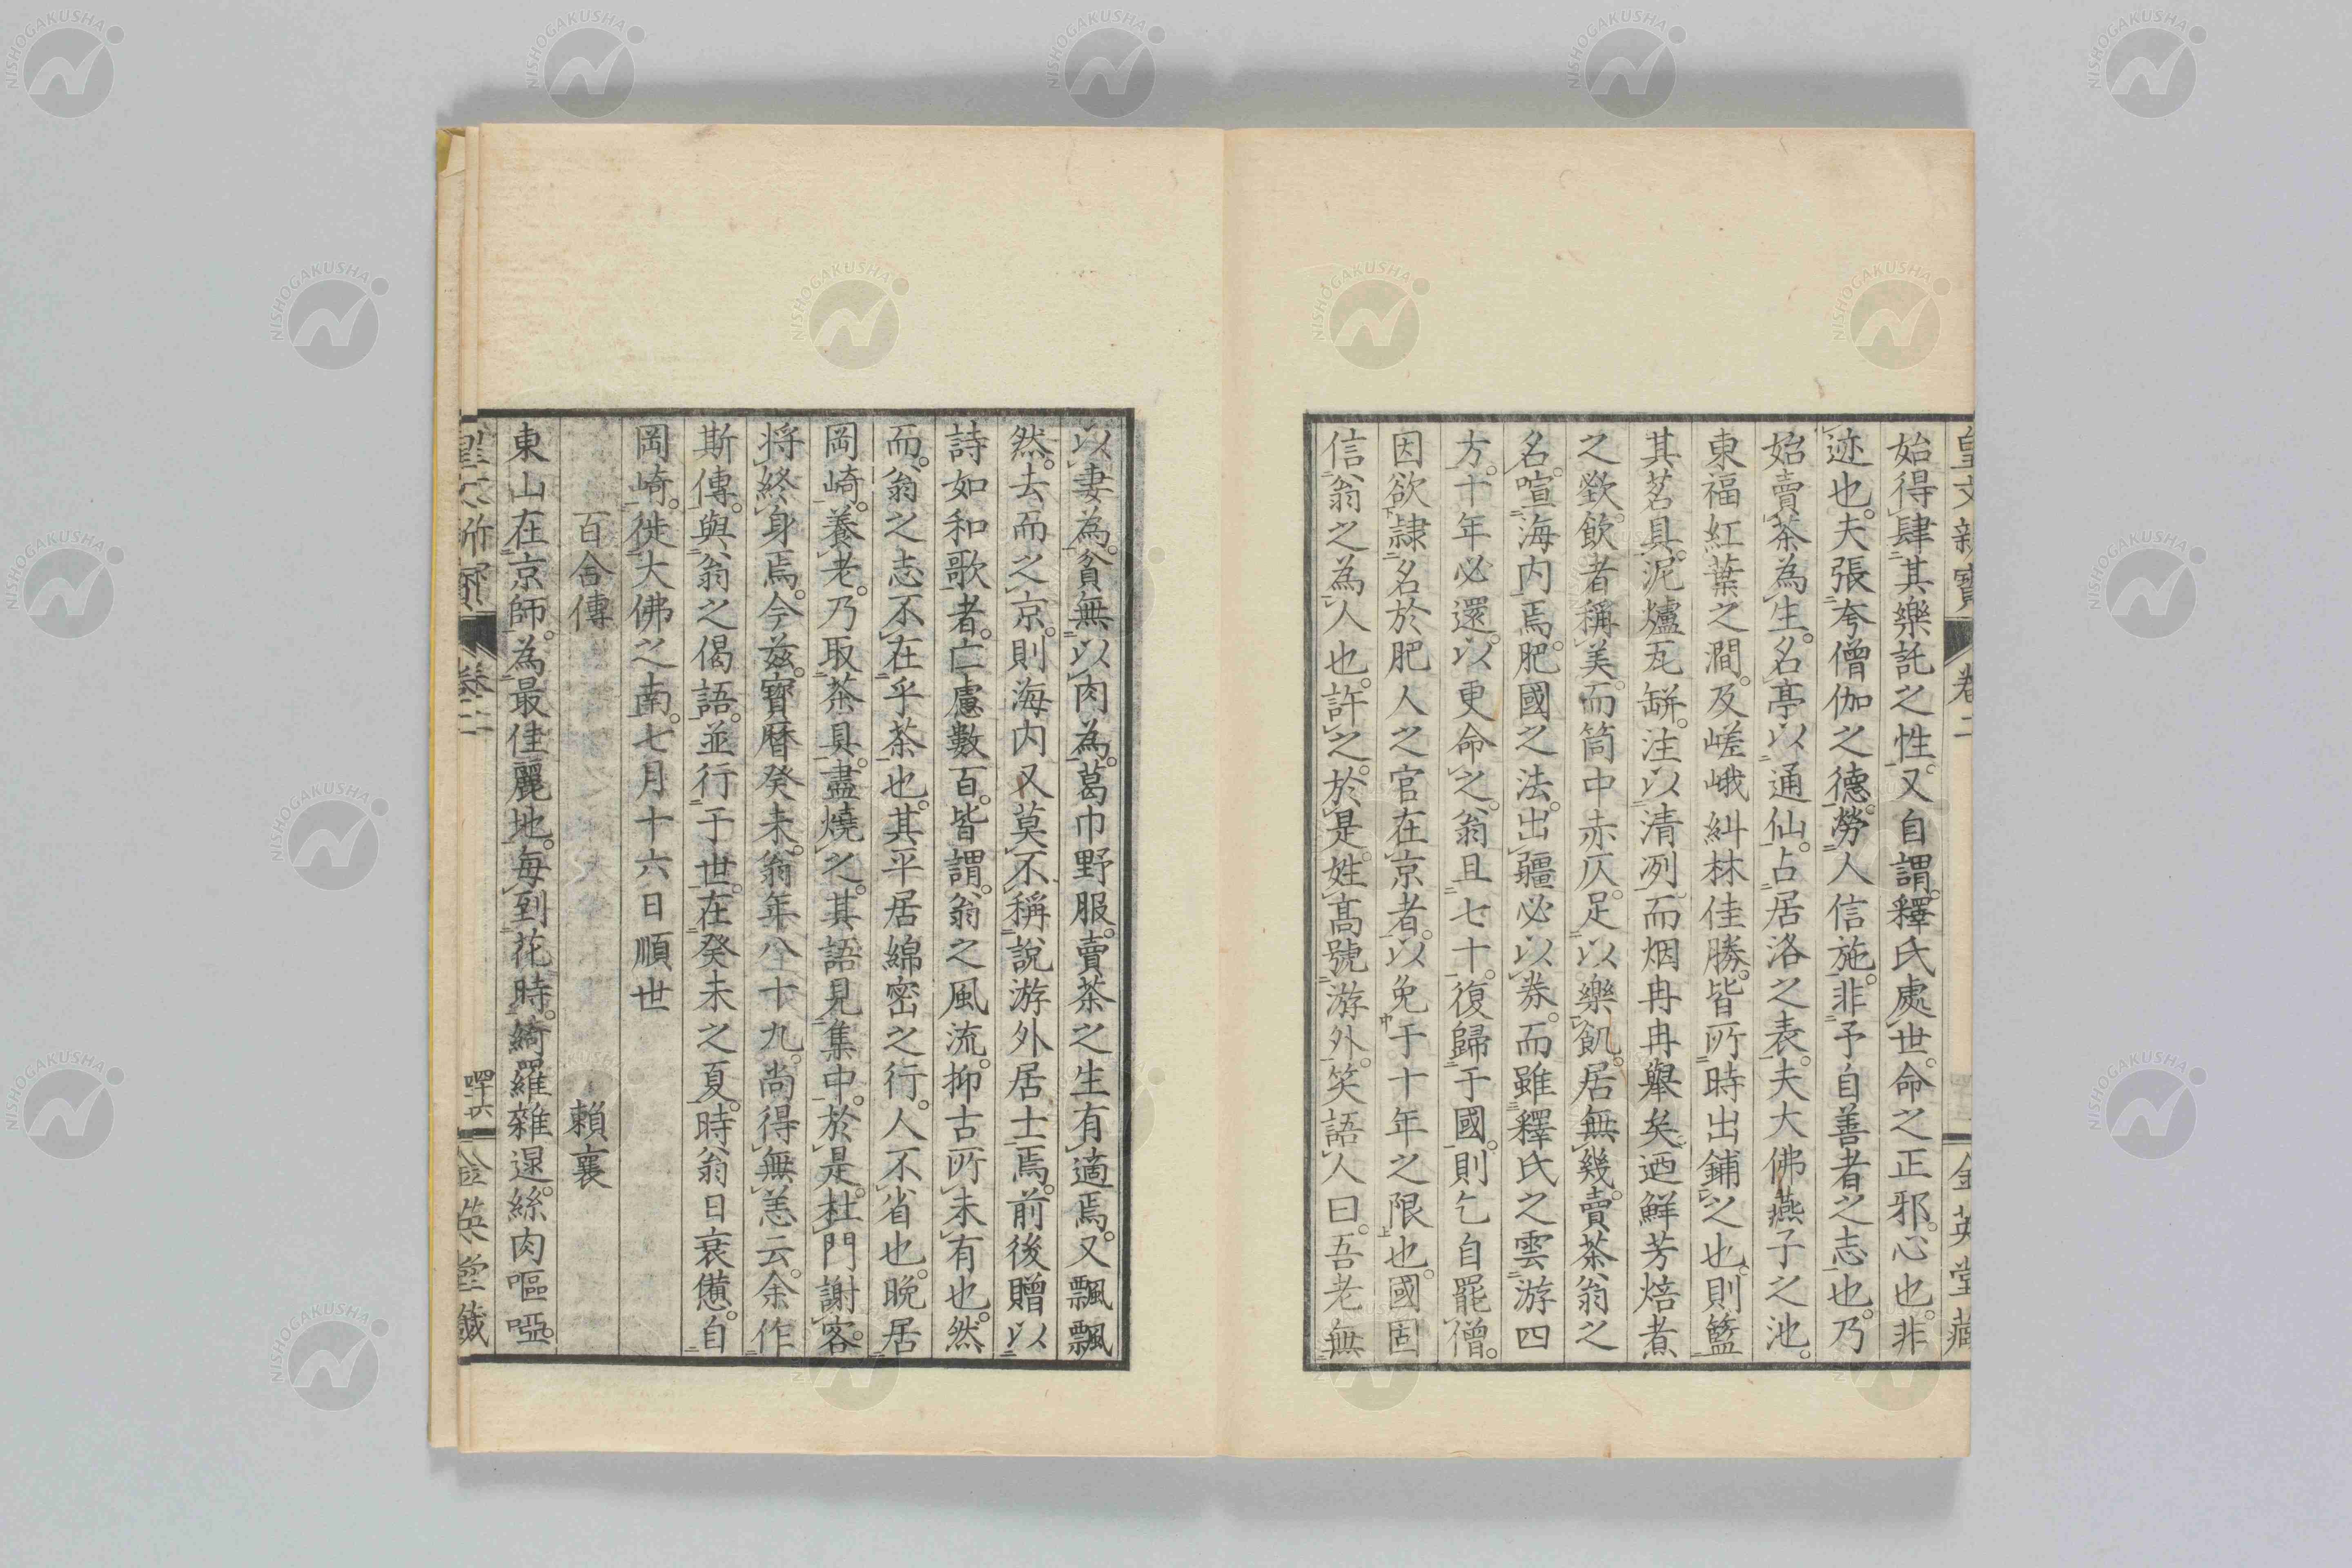 皇文新寶 卷二 金英堂藏
始得肆其樂託之性。又自謂。釋氏處世。命之正邪。心也。非
迹也。夫張夸僧伽之德。勞人信施。非予自善者之志也。乃
始賣茶為生。名亭以通仙。占居洛之表。夫大佛燕子之池。
東福紅葉之澗。及嵯峨糾林佳勝。皆所時出鋪之也。則籃
其茗具。泥爐瓦缾。注以清冽而烟冉冉舉矣。迺鮮芳焙煮
之欵。飲者稱美。而筒中赤仄。足以樂飢。居無幾。賣茶翁之
名。喧海內焉。肥國之法。出疆必以券。而雖釋氏之雲游四
方。十年必還。以更命之。翁且七十。復歸于國。則乞自罷僧。
因欲隷名於肥人之官在京者。以免于十年之限也。國固
信翁之為人也。許之。於是姓高號游外。笑語人曰。吾老無
以妻為。貧無以肉為。葛巾野服。賣茶之生有適焉。又飄飄
然。去而之京。則海內又莫不稱說游外居士焉。前後贈以
詩如和歌者。亡慮數百。皆謂。翁之風流。抑古所未有也。然
而。翁之志不在乎茶也。其平居綿密之行。人不省也。晩居
岡崎。養老。乃取茶具。盡燒之。其語見集中。於是。杜門謝客。
將終身焉。今茲。寶曆癸未。翁年八十九。尚得無恙云。余作
斯傳。與翁之偈語。並行于世。在癸未之夏。時翁日衰憊。自
岡崎。徙大佛之南。七月十六日順世
百合傳 賴襄
東山在京師。為最佳麗地。每到花時。綺羅雜遝。絲肉嘔啞。
皇文新寶 卷二 四十六 金英堂藏
NISHOGAKUSHA